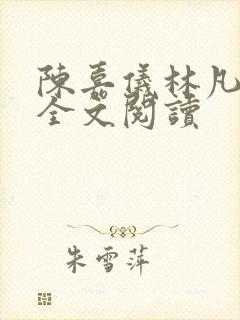 陳嘉儀林凡
全文閱讀
朱雪萍